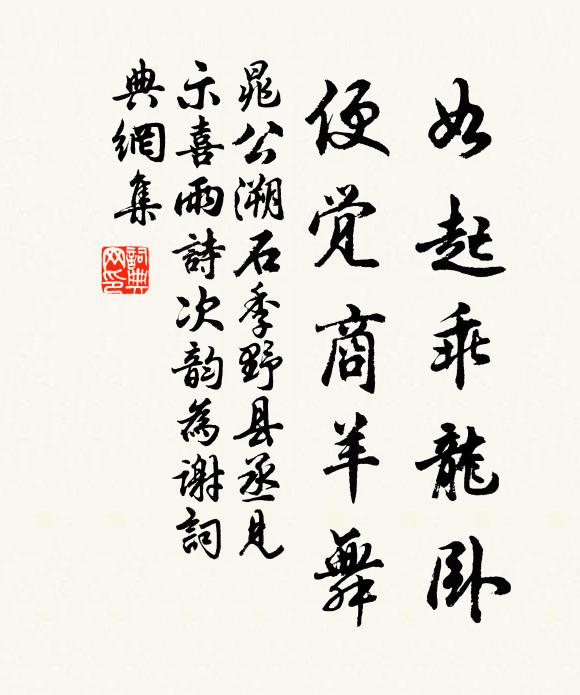 如起乖龍卧
便覚商羊舞
晁公溯石季野县丞見
示喜雨詩次韵為謝詞
典網集
詞典网印